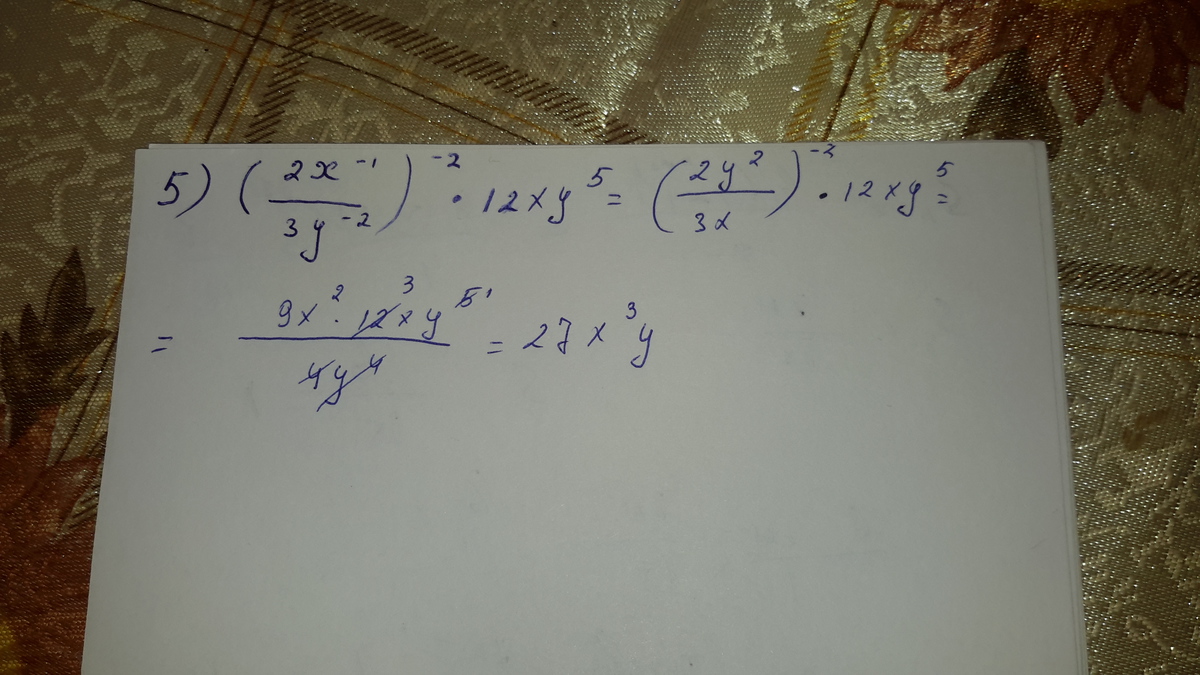 5) (2x⁻¹ / 3y⁻²)⁻² · 12xy⁵ = (2y² / 3x)⁻² · 12xy⁵ =
= 9x² · 12³xy⁵¹ / 4y⁴ = 27x³y